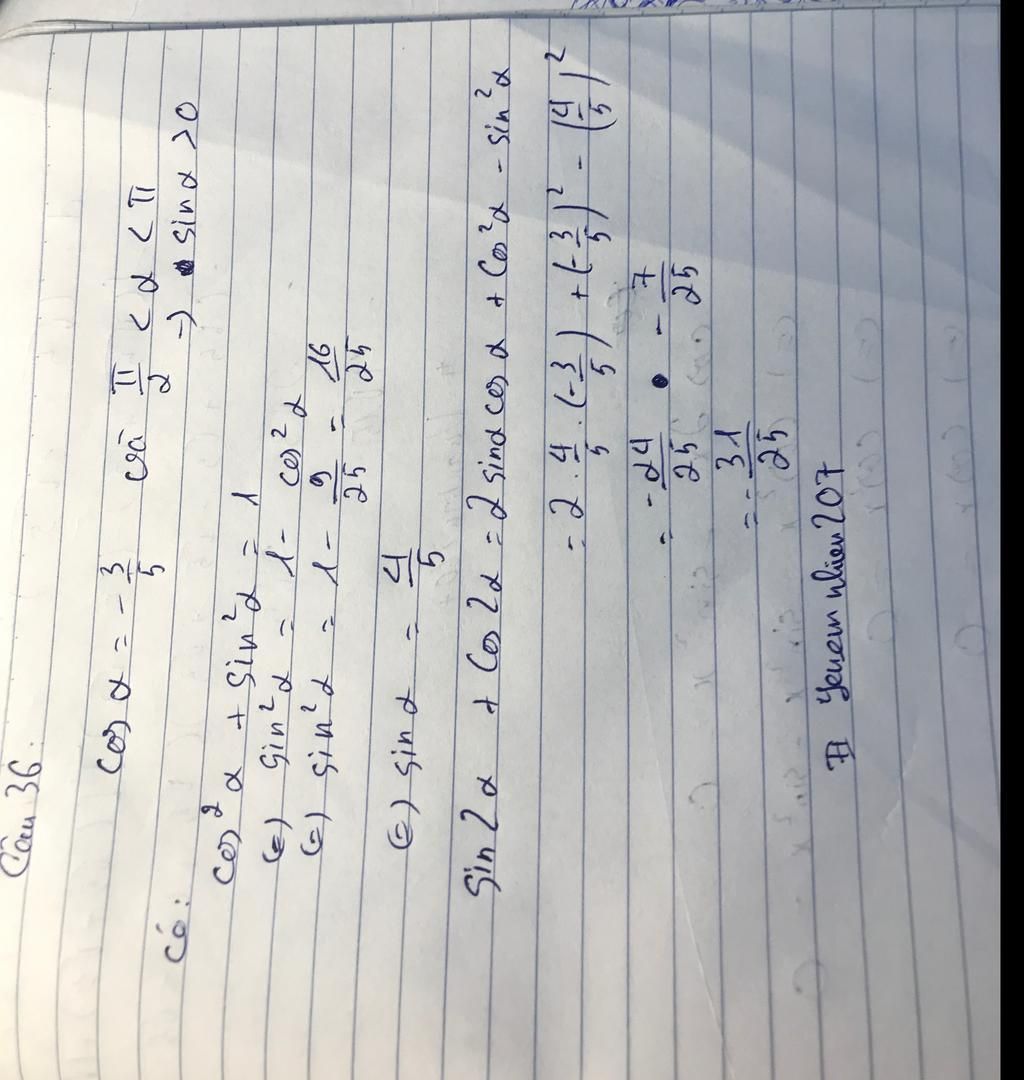 Câu 36:
cos α = - 3/5 và π/2 < α < π
→ sin α > 0
Có:
cos² α + sin² α = 1
(=) sin² α = 1 - cos² α
(=) sin² α = 1 - 9/25 = 16/25
(=) sin α = 4/5
sin 2α + cos 2α = 2 sin α cos α + cos² α - sin² α
= 2 . 4/5 . (- 3/5) + (- 3/5)² - (4/5)²
= - 24/25 - 7/25
= - 31/25